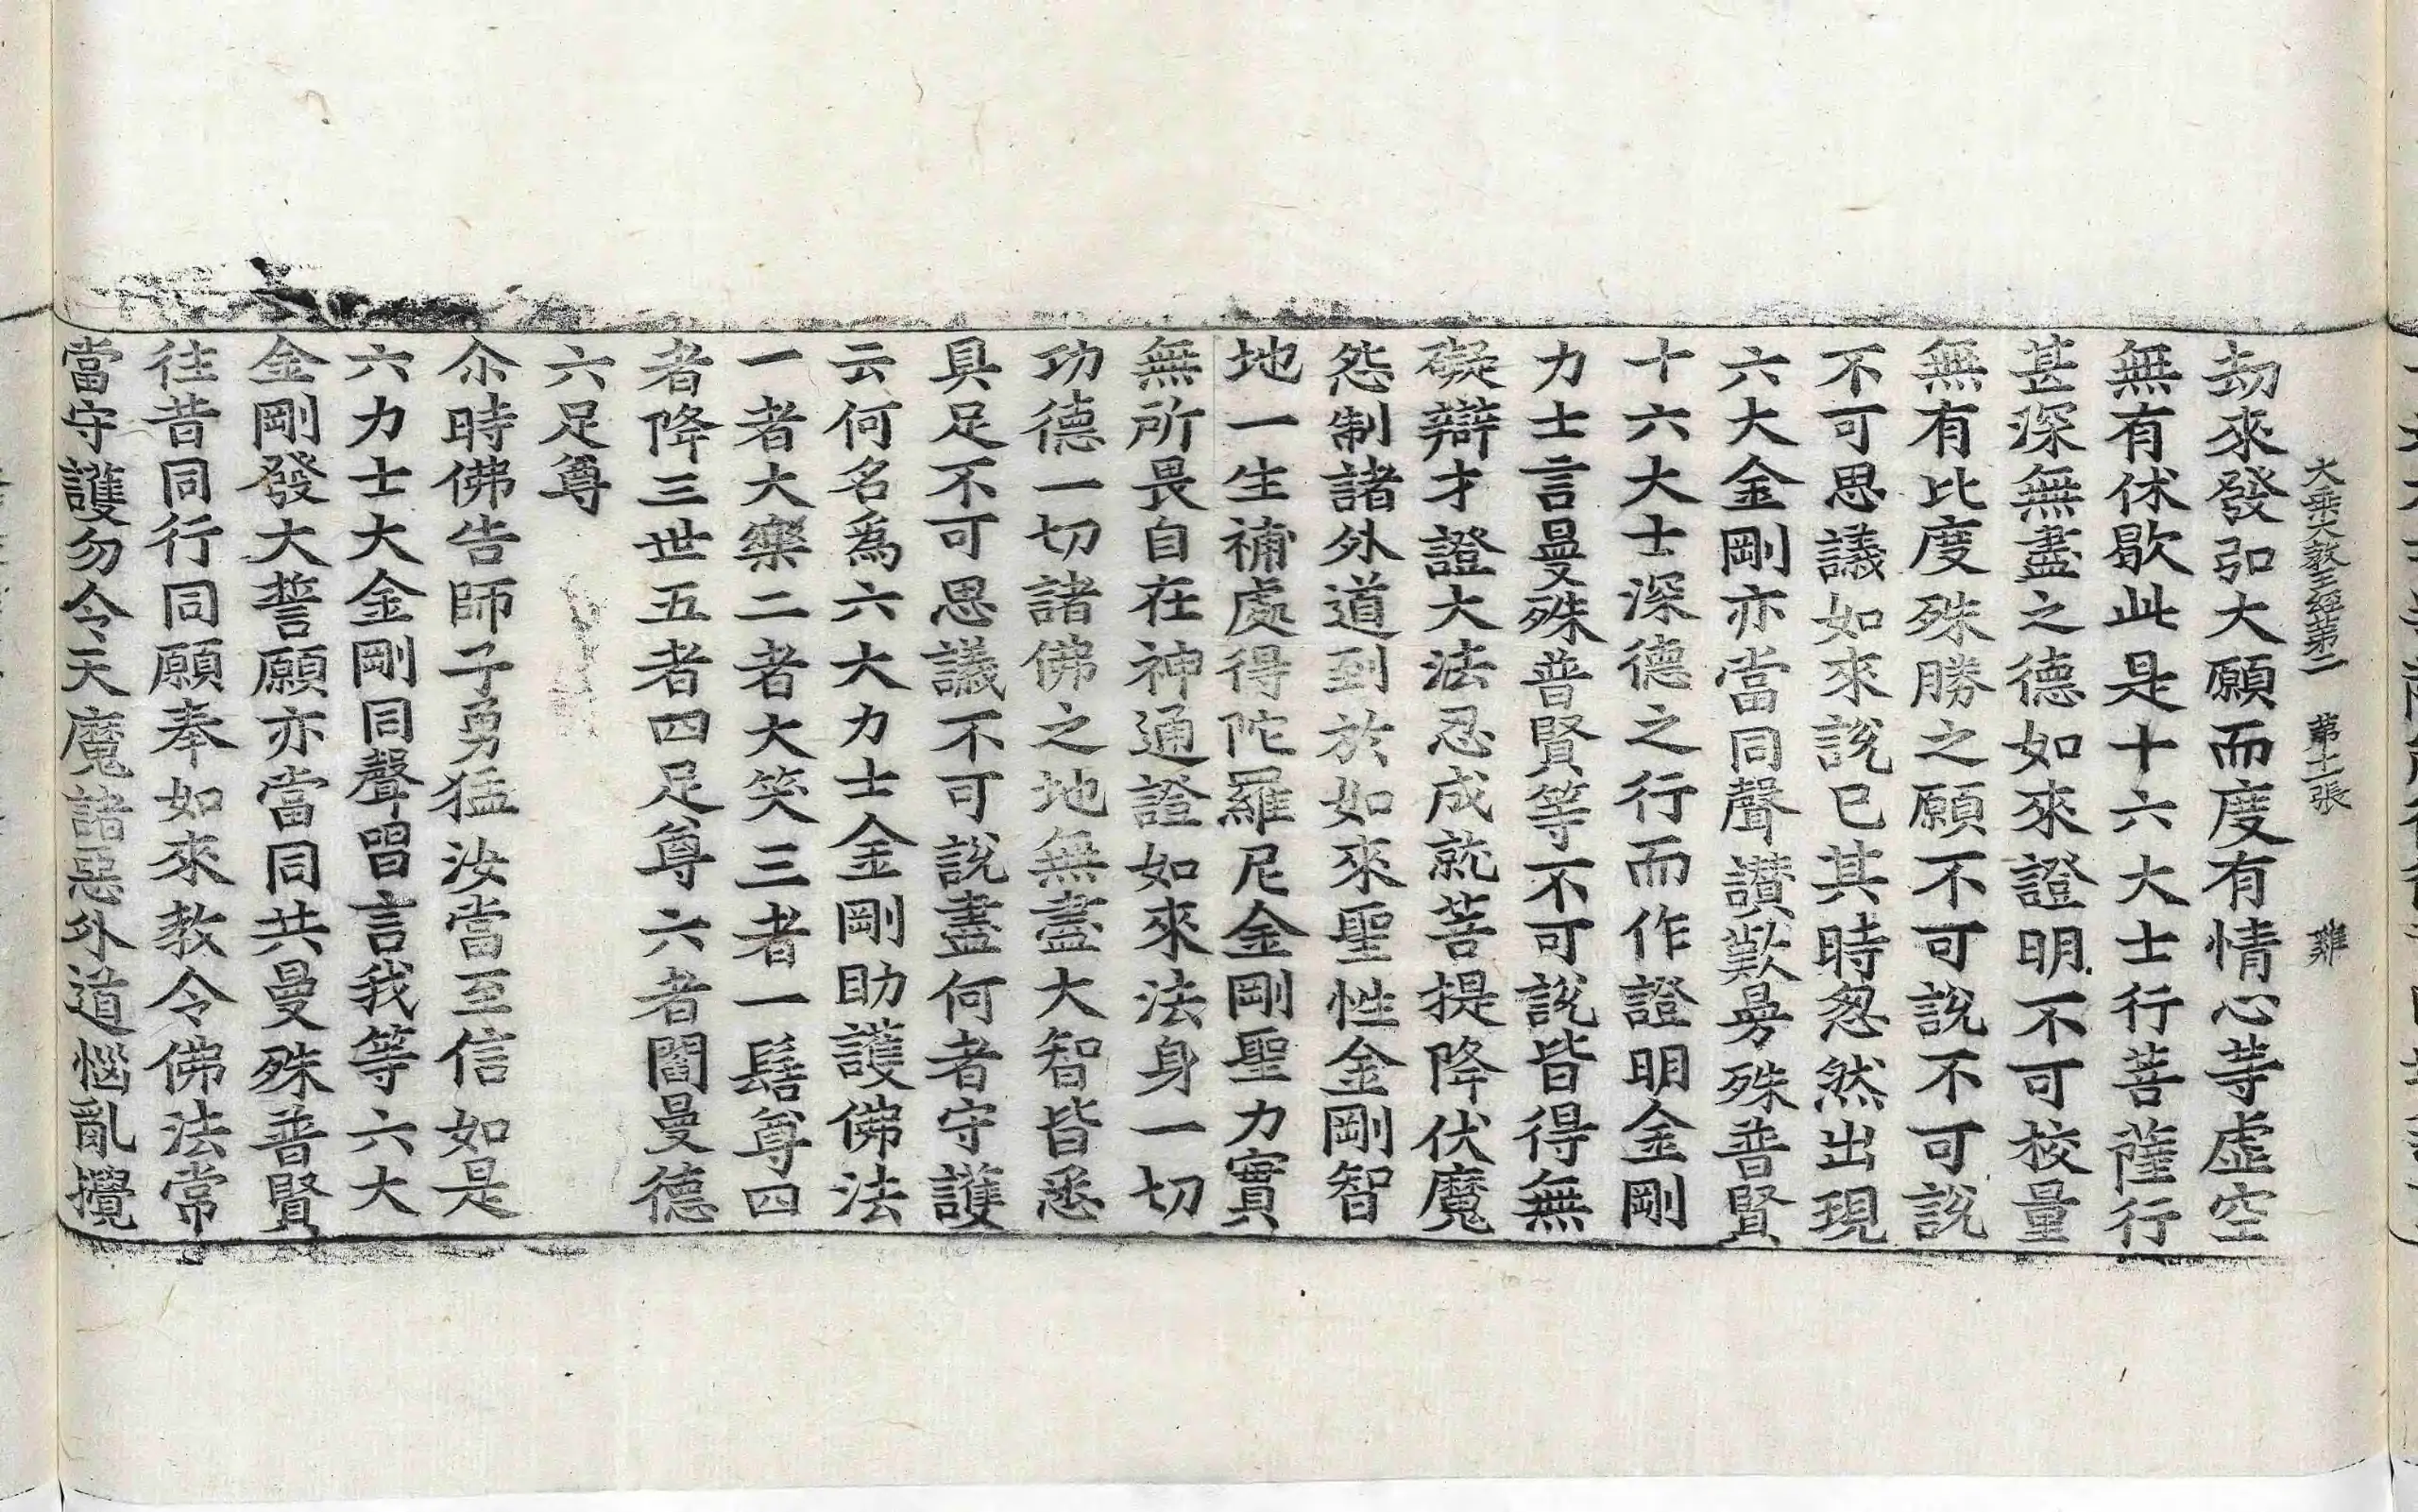 大乘大教王經第二　第十一張　雞
劫來發弘大願而度有情心等虛空
無有休歇此是十六大士行菩薩行
甚深無盡之德如來證明不可校量
無有比度殊勝之願不可說不可說
不可思議如來說已其時忽然出現
六大金剛亦當同聲讃歎曼殊普賢
十六大士深德之行而作證明金剛
力士言曼殊普賢等不可說皆得無
礙辯才證大法忍成就菩提降伏魔
怨制諸外道到於如來聖性金剛智
地一生補處得陀羅尼金剛聖力實
無所畏自在神通證如來法身一切
功德一切諸佛之地無盡大智皆悉
具足不可思議不可說盡何者守護
云何名為六大力士金剛助護佛法
一者大樂二者大笑三者一髻尊四
者降三世五者四足尊六者閻曼德
六足尊
尒時佛告師子勇猛汝當至信如是
六力士大金剛同聲唱言我等六大
金剛發大誓願亦當同共曼殊普賢
往昔同行同願奉如來教令佛法常
當守護勿令天魔諸惡外道惱亂攪